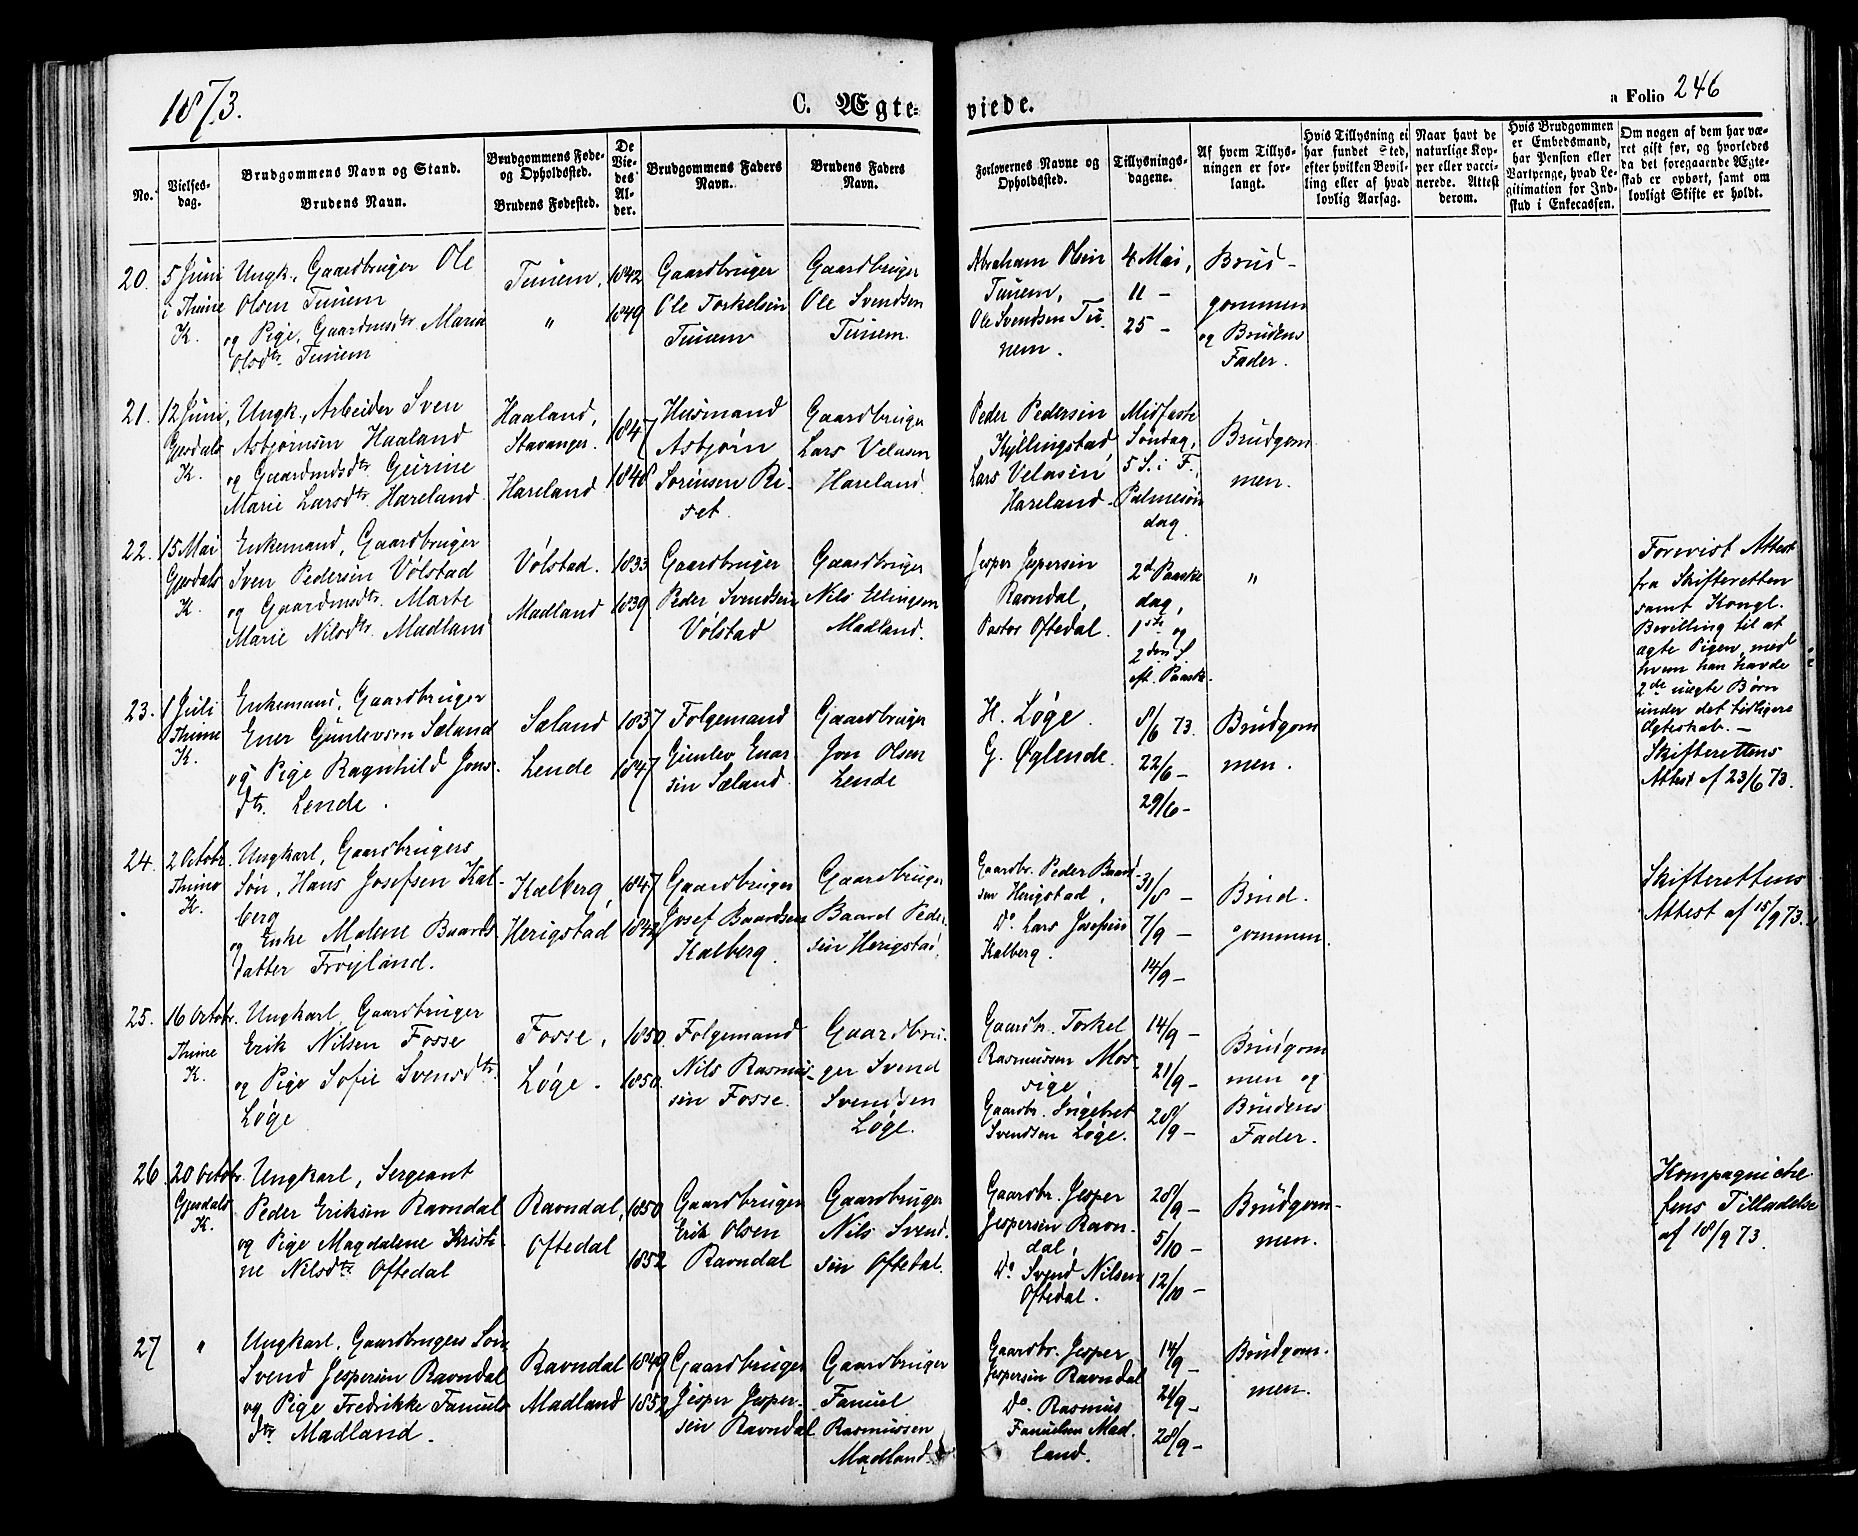 1873.
C. Ægte-
viede.
a Folio 246
No.
Vielses-
dag.
Brudgommens Navn og Stand.
Brudens Navn.
Brudgommens Føde-
og Opholdssted.
Brudens Fødested.
De
Vie-
des
Al-
der.
Brudgommens Faders
Navn.
Brudens Faders
Navn.
Forlovernes Navne og
Opholdssted.
Tillysnings-
dagene.
Af hvem Tillys-
ningen er for-
langt.
Hvis Tillysning ei
har fundet Sted,
efter hvilken Bevil-
ling eller af hvad
lovlig Aarsag.
Naar havt de
naturlige Kop-
per eller vacci-
nerede. Attest
derom.
Hvis Brudgommen
er Embedsmand,
har Pension eller
Vartpenge, hvad Le-
gitimation for Ind-
skud i Enkecassen.
Om nogen af dem har væ-
ret gift før, og hvorledes
da det foregaaende Ægte-
skab er ophørt, samt om
lovligt Skifte er holdt.
20.
5 Juni
i Thime
K.
Ungk., Gaardbruger Ole
Olsen Tunem
og Pige, Gaardmdsdtr Maria
Olsdtr. Tunem
Tunem,
"
1842
1849
Gaardbruger
Ole Torkelsen
Tunem
Gaardbruger
Ole Svendsen
Tunem.
Abraham Olsen
Tunem,
Ole Svendsen Tu-
nem.
4 Mai,
11 -
25 -
Brud-
gommen
og Brudens
Fader.
21.
12 Juni,
Gjesdals
K.
Ungk., Arbeider Sven
Asbjørnsen Haaland
og Gaardmdsdtr. Geirine
Marie Larsdtr. Hareland
Haaland,
Stavanger.
Hareland
1847
1848
Husmand
Asbjørn
Sørensen Ri-
set.
Gaardbruger
Lars Velasen
Hareland.
Peder Pedersen
Kyllingstad,
Lars Velasen
Hareland.
Midfaste
Søndag,
5 S. i F.
Palmesøn
dag.
Brudgom
men.
22.
15 Mai
Gjesdals
K.
Enkemand, Gaardbruger
Sven Pedersen Vølstad
og Gaardmdsdtr. Marte
Marie Nilsdtr. Madland
Vølstad.
Madland
1833
1839.
Gaardbruger
Peder Svendsen
Vølstad
Gaardbruger
Nils Ellingsen
Madland.
Jesper Jespersen
Ravndal,
Pastor Oftedal.
2d Paaske
dag,
1ste og
2den S
eft. Paaske.
"
Forevist Attest
fra Skifteretten
samt Kongl.
Bevilling til at
ægte Pigen, med
hvem han havde
2de uægte Børn
under det tidligere
Ægteskab. -
23.
1 Juli
Thime
K.
Enkemand, Gaardbruger
Ener Gunlevsen Sæland
og Pige Ragnhild Jons-
dtr. Lende.
Sæland
Lende
1837
1847
Folgemand
Gunlev Enar
sen Sæland.
Gaardbruger
Jon Olsen
Lende
H. Løge.
G. Øglende.
8/6 73.
22/6 -
29/6 -
Brudgom
men.
Skifterettens
Attest af 23/6 73.
24.
2 Octobr.
Thime
K.
Ungkarl, Gaardbrugers
Søn, Hans Josefsen Kal-
berg
og Enke Malene Baards
datter Frøyland.
Kalberg,
Herigstad
1847
1842
Gaardbruger
Josef Baardsen
Kalberg.
Gaardbruger
Baard Peder
sen Herigstad.
Gaardbr. Peder Baard-
sen Herigstad,
Do. Lars Josefsen
Kalberg.
31/8 -
7/9 -
14/9 -
Brud.
gommen.
Skifterettens
Attest af 15/9 73.
25.
16 Octobr.
Thime
K.
Ungkarl, Gaardbruger
Erik Nilsen Fosse
og Pige Sofie Svensdtr.
Løge
Fosse,
Løge.
1850.
1850.
Folgemand
Nils Rasmus-
sen Fosse.
Gaardbru-
ger Svend
Svendsen
Løge.
Gaardbr. Torkel
Rasmussen Mos-
sige,
Gaardbr. Ingebret
Svendsen Løge.
14/9 -
21/9 -
28/9 -
Brudgom
men og
Brudens
Fader.
26.
20 Octobr.
Gjesdals
K.
Ungkarl, Sergeant
Peder Eriksen Ravndal
og Pige Magdalene Kristi-
ne Nilsdtr. Oftedal
Ravndal,
Oftedal
1850
1852
Gaardbruger
Erik Olsen
Ravndal
Gaardbruger
Nils Svend-
sen Oftedal.
Gaardbr. Jesper
Jespersen Ravn-
dal,
Do. Svend Nilsen
Oftedal.
28/9 -
5/10 -
12/10 -
Brudgom-
men.
Kompagniche
fens Tilladelse
af 18/9 73.
27
"
Ungkarl, Gaardbrugers Søn
Svend Jespersen Ravndal
og Pige Fredrikke Fanuels
dtr. Madland.
Ravndal
Madland
1849
1852
Gaardbruger
Jesper Jesper-
sen Ravndal
Gaardbruger
Fanuel
Rasmussen
Madland.
Gaardbr. Jesper
Jespersen Ravndal
Do. Rasmus
Fanuelsen Mad-
land.
14/9 -
21/9 -
28/9 -
Brudgom-
men.